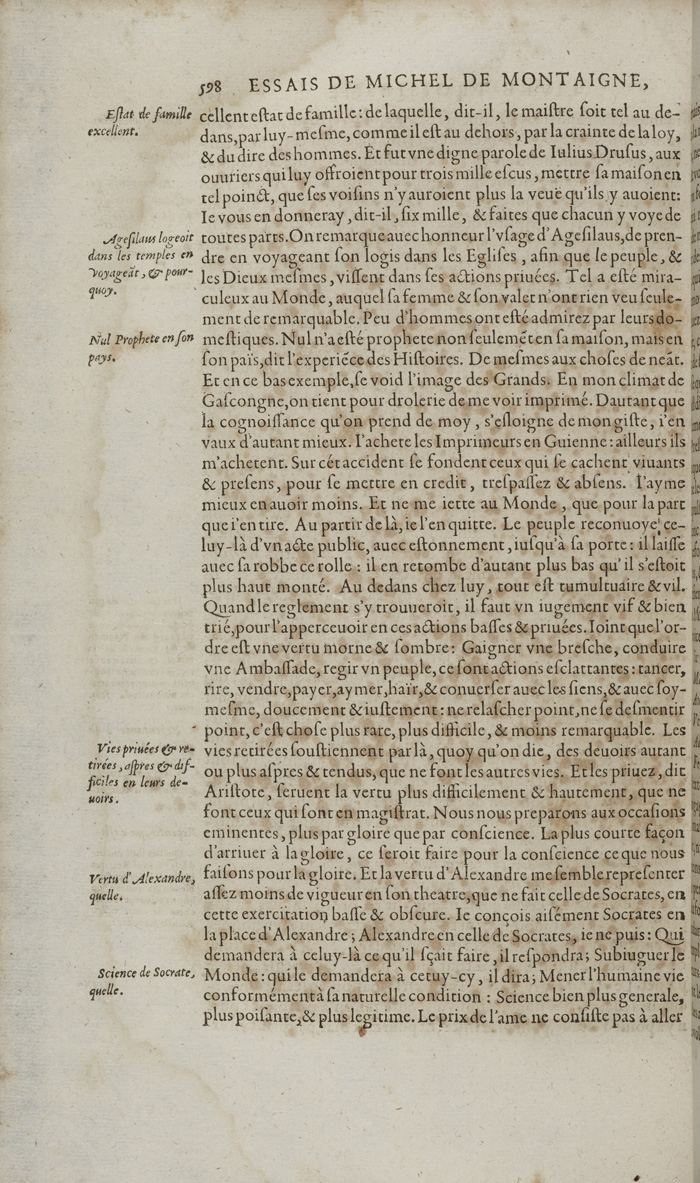 598 ESSAIS DE MICHEL DE MONTAIGNE,
Eſtat de famille
excellent.
cellent eſtat de famille : de laquelle, dit-il, le maiſtre ſoit tel au de-
dans, par luy-meſme, comme il eſt au dehors, par la crainte de la loy,
& du dire des hommes. Et fut vne digne parole de Iulius Druſus, aux
ouuriers qui luy offroient pour trois mille eſcus, mettre ſa maiſon en
tel poinct, que ſes voiſins n'y auroient plus la veuë qu'ils y auoient:
Ie vous en donneray, dit-il, ſix mille, & faites que chacun y voye de
Ageſilaus logeoit
dans les temples en
voyageãt, & pour-
quoy.
toutes parts. On remarque auec honneur l'vſage d'Ageſilaus, de pren-
dre en voyageant ſon logis dans les Egliſes, afin que le peuple, &
les Dieux meſmes, viſſent dans ſes actions priuées. Tel a eſté mira-
culeux au Monde, auquel ſa femme & ſon valet n'ont rien veu ſeule-
ment de remarquable. Peu d'hommes ont eſté admirez par leurs do-
Nul Prophete en ſon
pays.
meſtiques. Nul n'a eſté prophete non ſeulemẽt en ſa maiſon, mais en
ſon païs, dit l'experiẽce des Hiſtoires. De meſmes aux choſes de neãt.
Et en ce bas exemple, ſe void l'image des Grands. En mon climat de
Gaſcongne, on tient pour drolerie de me voir imprimé. Dautant que
la cognoiſſance qu'on prend de moy, s'eſloigne de mon giſte, i'en
vaux d'autant mieux. I'achete les Imprimeurs en Guienne : ailleurs ils
m'achetent. Sur cét accident ſe fondent ceux qui ſe cachent viuants
& preſens, pour ſe mettre en credit, treſpaſſez & abſens. I'ayme
mieux en auoir moins. Et ne me iette au Monde, que pour la part
que i'en tire. Au partir de là, ie l'en quitte. Le peuple reconuoye ce-
luy-là d'vn acte public, auec eſtonnement, iuſqu'à ſa porte : il laiſſe
auec ſa robbe ce rolle : il en retombe d'autant plus bas qu'il s'eſtoit
plus haut monté. Au dedans chez luy, tout eſt tumultuaire & vil.
Quand le reglement s'y trouueroit, il faut vn iugement vif & bien
trié, pour l'apperceuoir en ces actions baſſes & priuées. Ioint que l'or-
dre eſt vne vertu morne & ſombre : Gaigner vne breſche, conduire
vne Ambaſſade, regir vn peuple, ce ſont actions eſclattantes : tancer,
rire, vendre, payer, aymer, haïr, & conuerſer auec les ſiens, & auec ſoy-
meſme, doucement & iuſtement : ne relaſcher point, ne ſe deſmentir
point, c'eſt choſe plus rare, plus difficile, & moins remarquable. Les
Vies priuées & re-
tirées, aſpres & dif-
ficiles en leurs de-
uoirs.
vies retirées ſouſtiennent par là, quoy qu'on die, des deuoirs autant
ou plus aſpres & tendus, que ne font les autres vies. Et les priuez, dit
Ariſtote, ſeruent la vertu plus difficilement & hautement, que ne
font ceux qui ſont en magiſtrat. Nous nous preparons aux occaſions
eminentes, plus par gloire que par conſcience. La plus courte façon
d'arriuer à la gloire, ce ſeroit faire pour la conſcience ce que nous
Vertu d'Alexandre,
quelle.
faiſons pour la gloire. Et la vertu d'Alexandre me ſemble repreſenter
aſſez moins de vigueur en ſon theatre, que ne fait celle de Socrates, en
cette exercitation baſſe & obſcure. Ie conçois aiſément Socrates en
la place d'Alexandre ; Alexandre en celle de Socrates, ie ne puis : Qui
demandera à celuy-là ce qu'il ſçait faire, il reſpondra ; Subiuguer le
Science de Socrate,
quelle.
Monde : qui le demandera à cetuy-cy, il dira ; Mener l'humaine vie
conformément à ſa naturelle condition : Science bien plus generale,
plus poiſante, & plus legitime. Le prix de l'ame ne conſiſte pas à aller